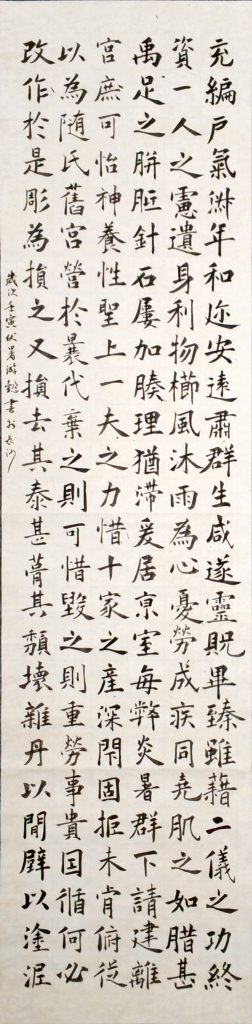 充編戶氣淑年和迩安遠肅群生咸遂靈貺畢臻雖藉二儀之功終
資一人之憲遺身利物櫛風沐雨為心憂勞成疾同堯肌之如腊甚
禹足之胼胝針石屢加腠理猶滯爰居京室每弊炎暑群下請建離
宮庶可怡神養性聖上一夫之力惜十家之產深閉固拒未肯俯從
以為随氏舊宮營於曩代棄之則可惜毀之則重勞事貴因循何必
改作於是彫為損之又損去其泰甚葺其頹壞雜丹以間壁以塗泥
歲次壬寅伏暑游書於長沙